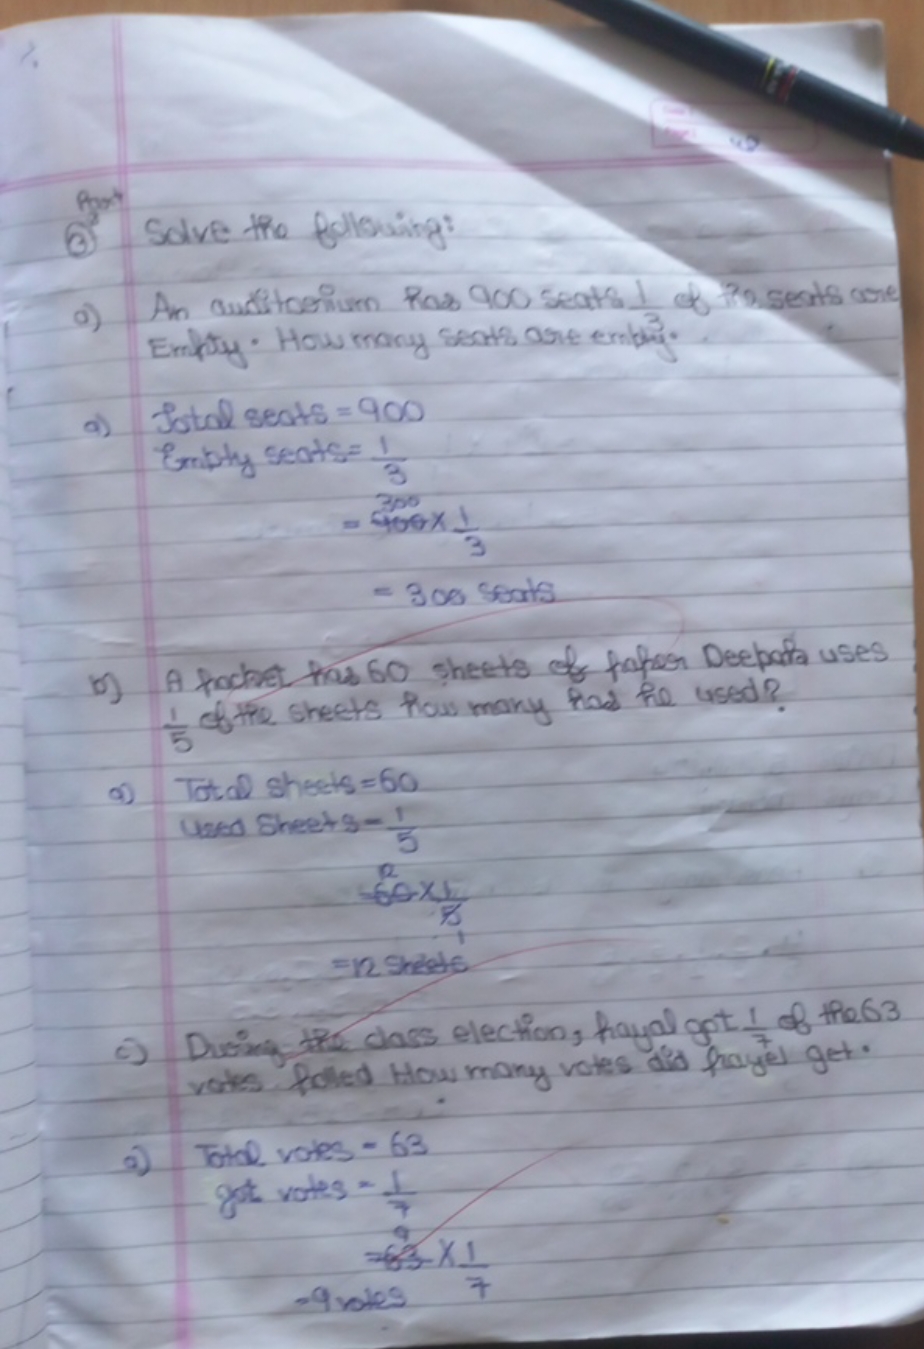 Solve the following:
a) An auditoerium has 900 seats 1/3 of the seats are
Empty. How many seats are empty.
a) Total seats = 900
Empty seats = 1/3
300
= 900 × 1/3
= 300 seats
b) A packet has 60 sheets of paper Deepak uses
1/5 of the sheets how many had he used?
a) Total sheets = 60
Used Sheets = 1/5
12
= 60 × 1/5
1
= 12 sheets
c) During the class election, payal got 1/7 of the 63
votes polled How many votes did payel get.
a) Total votes = 63
got votes = 1/7
9
= 63 × 1/7
= 9 votes